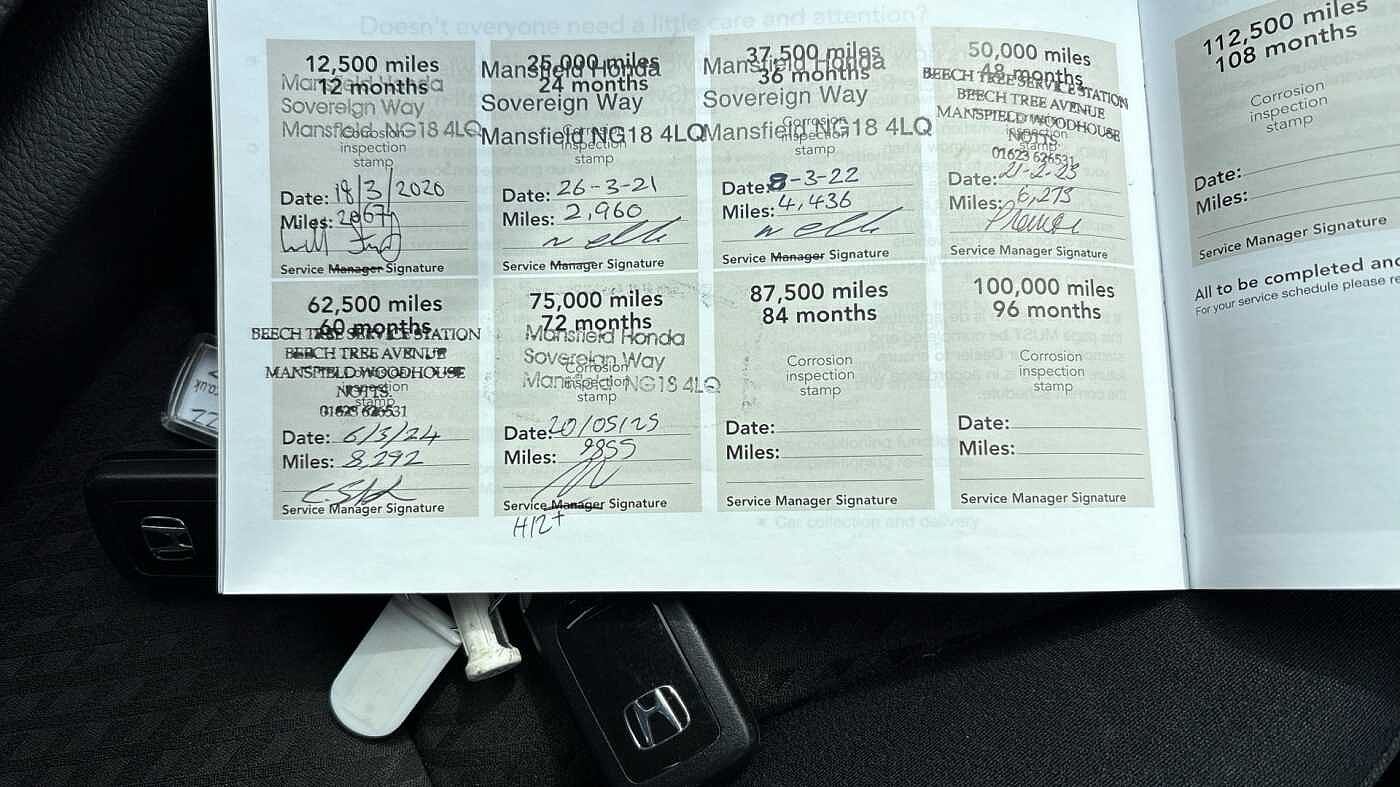 Doesn't everyone need a little care and attention?
12,500 miles
12 months
Mansfield Honda
Sovereign Way
Mansfield NG18 4LQ
Corrosion
inspection
stamp
Date: 18/3/2020
Miles: 2067
Service Manager Signature
25,000 miles
24 months
Mansfield Honda
Sovereign Way
Mansfield NG18 4LQ
Corrosion
inspection
stamp
Date: 26-3-21
Miles: 2,960
Service Manager Signature
37,500 miles
36 months
Mansfield Honda
Sovereign Way
Mansfield NG18 4LQ
Corrosion
inspection
stamp
Date: 8-3-22
Miles: 4,436
Service Manager Signature
50,000 miles
48 months
BEECH TREE SERVICE STATION
BEECH TREE AVENUE
MANSFIELD WOODHOUSE
NOTTS.
01623 626531
inspection
stamp
Date: 21-2-23
Miles: 6,273
Service Manager Signature
112,500 miles
108 months
Corrosion
inspection
stamp
Date:
Miles:
Service Manager Signature
62,500 miles
60 months
BEECH TREE SERVICE STATION
BEECH TREE AVENUE
MANSFIELD WOODHOUSE
NOTTS.
01623 626531
inspection
stamp
Date: 6/3/24
Miles: 8,292
Service Manager Signature
75,000 miles
72 months
Mansfield Honda
Sovereign Way
Mansfield NG18 4LQ
Corrosion
inspection
stamp
Date: 20/05/25
Miles: 9855
Service Manager Signature
H12+
87,500 miles
84 months
Corrosion
inspection
stamp
Date:
Miles:
Service Manager Signature
100,000 miles
96 months
Corrosion
inspection
stamp
Date:
Miles:
Service Manager Signature
All to be completed and
For your service schedule please
Car collection and delivery